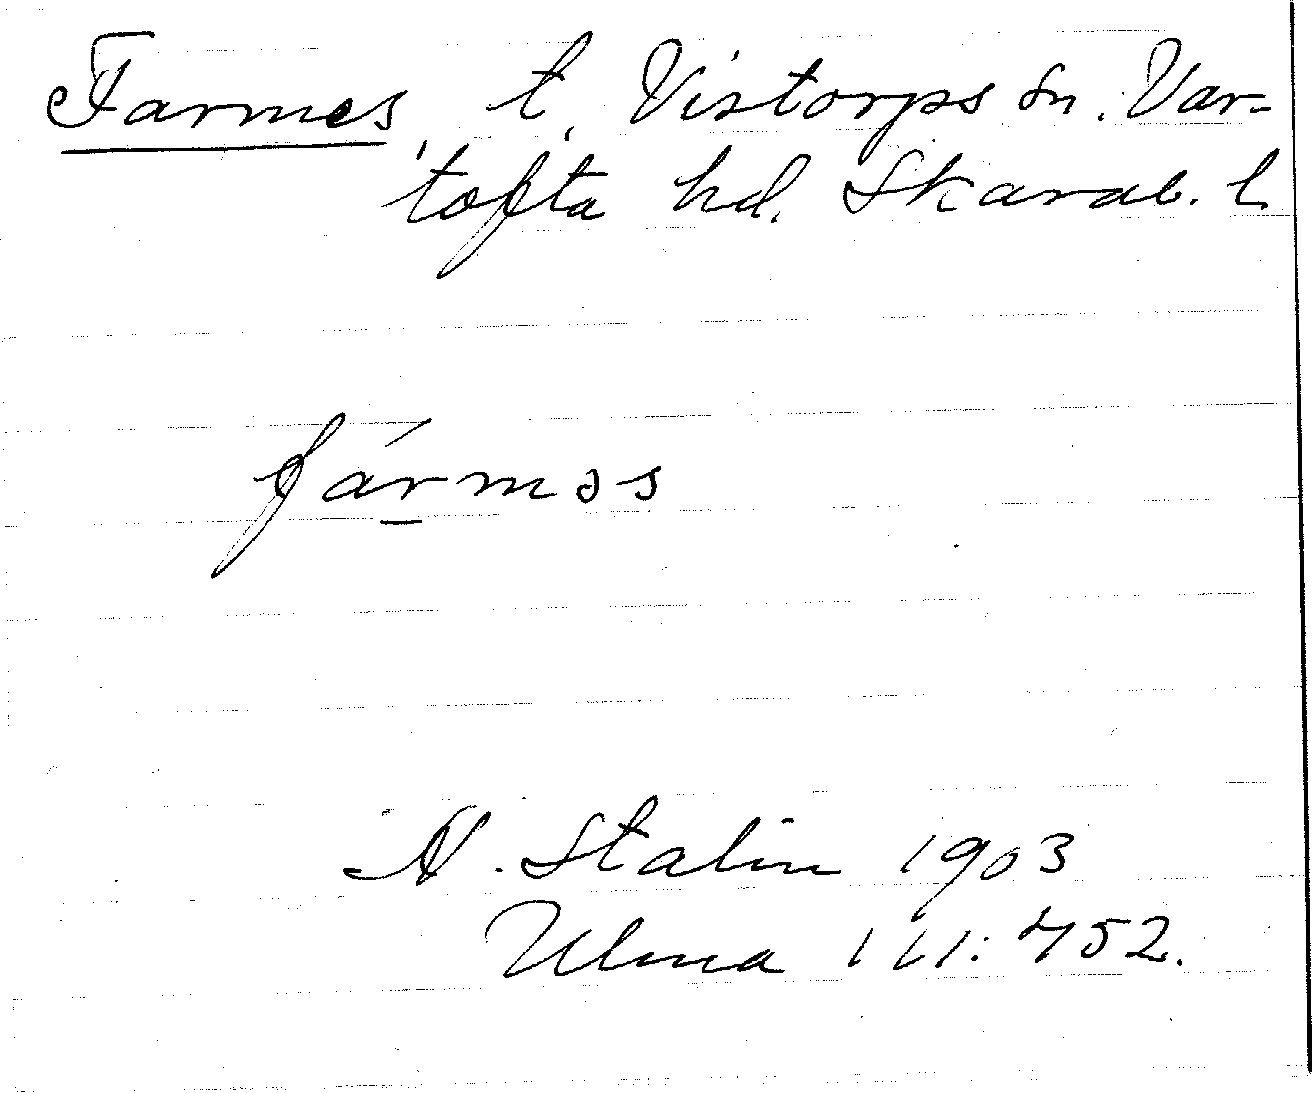 Farmes, t., Vistorps sn. Var-
tofta hd. Skarab. l.
fárməs
N. Stalin 1903
Ulma 111: 452.